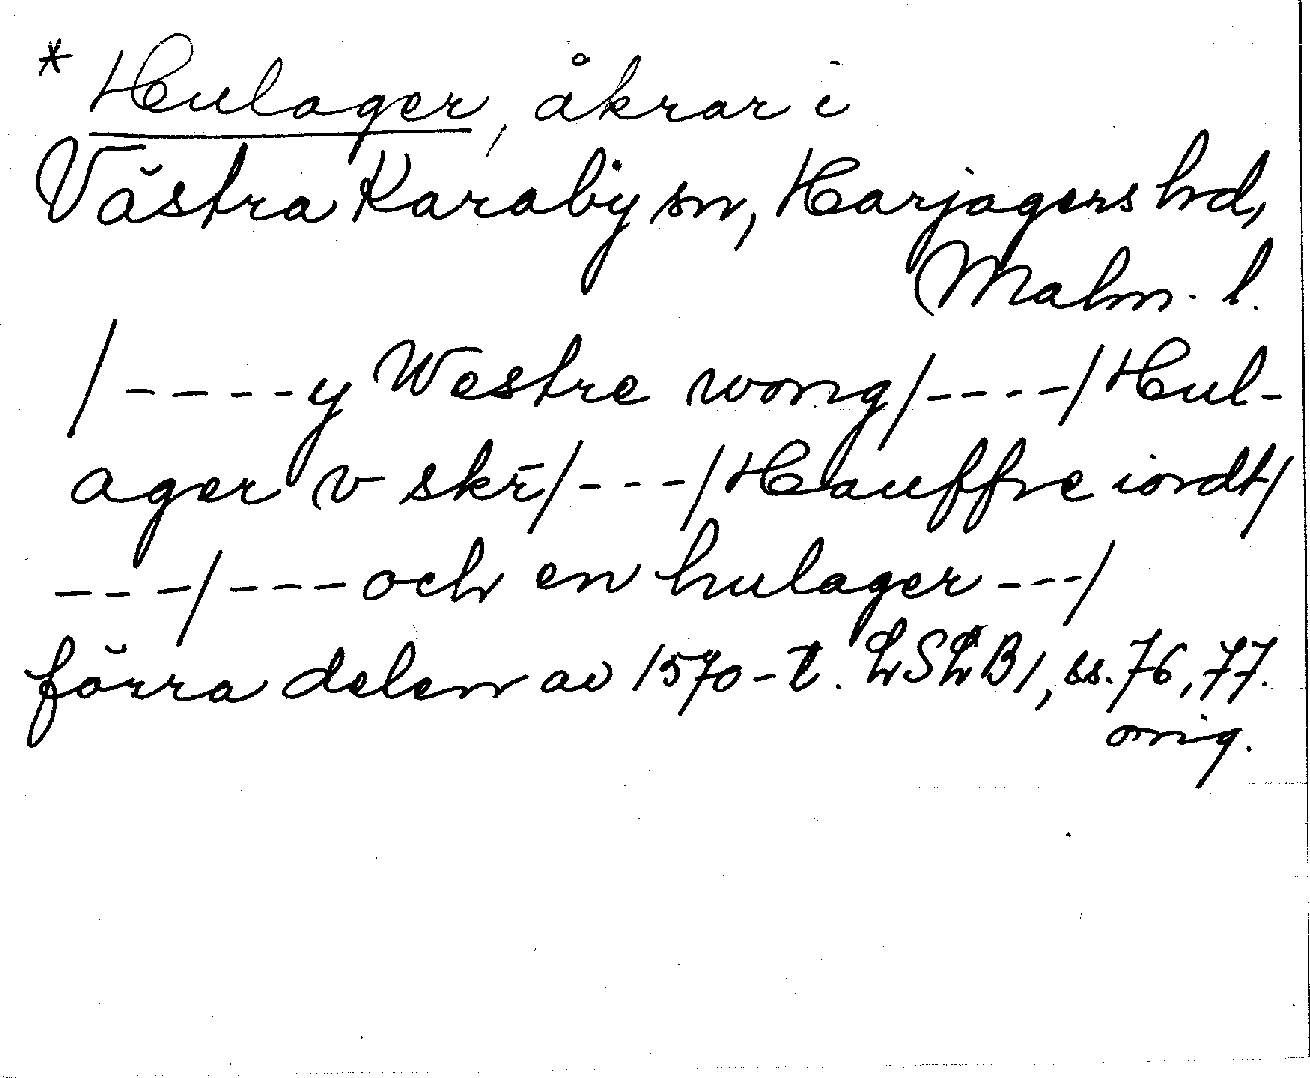 * Hulager, åkrar i
Västra Karaby sn, Harjagers hd,
Malm. l.
/----y Westre wong/----/Hul-
ager v skr̄/---/Hauffre iordt/
---/---och en hulager---/
förra delen av 1570-t. LSLB1, ss. 76, 77.
orig.